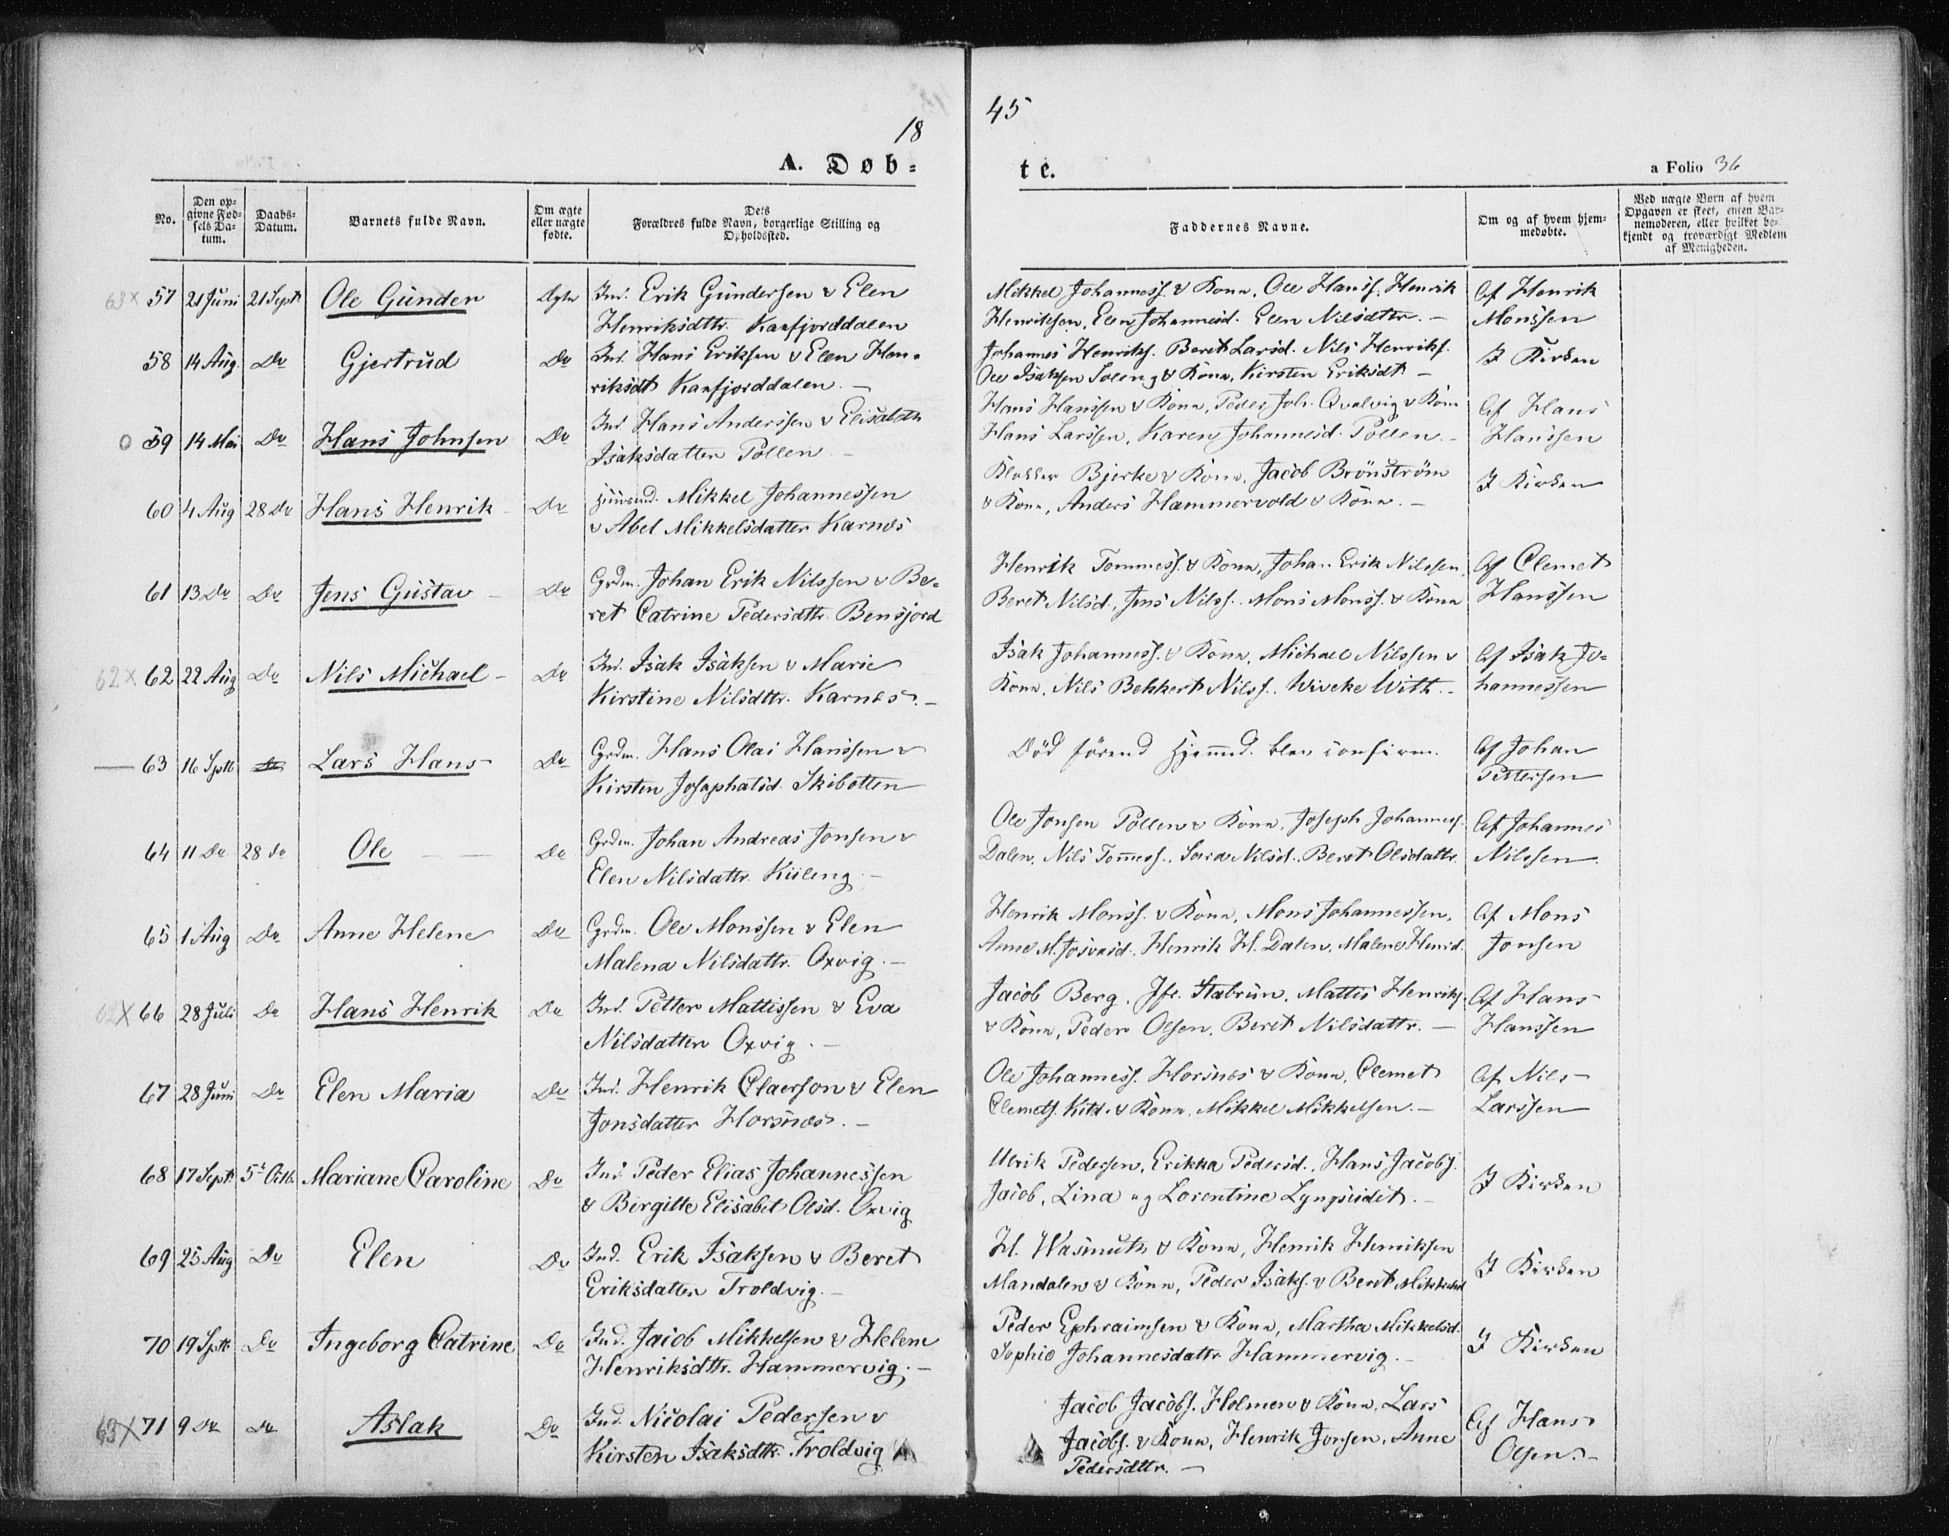 18
45
A. Døb-
te.
a Folio 36
No.
Den op-
givne Fød-
sels Da-
tum.
Daabs-
Datum.
Barnets fulde Navn.
Om ægte
eller uægte
fødte.
Dets
Forældres fulde Navn, borgerlige Stilling og
Opholdssted.
Faddernes Navne.
Om og af hvem hjem-
medøbte.
Ved uægte Børn af hvem
Opgaven er skeet, enten Bar-
nemoderen, eller hvilket be-
kjendt og troværdigt Medlem
af Menigheden.
63x 57 21 Juni 21 Septr Ole Gunder Ægte Ind. Erik Gundersen & Elen
Henriksdttr. Kaafjorddalen
Mikkel Johanness. & Kona, Ole Hanss. Henrik
Henriksen, Elen Johannesd. Elen Nilsdttr. —
Af Henrik
Monssen
58 14 Aug. Do Gjertrud Do Ind. Hans Eriksen & Elen Hen-
riksdt Kaafjorddalen. —
Johannes Henriks. Beret Larsd. Nils Henriks.
Ole Isaksen Soleng & Kona, Kirsten Eriksdt —
I Kirken
o 59 14 Mai Do Hans Johnsen Do Ind Hans Anderssen & Elisabeth
Isaksdatter Pollen —
Hans Hanssen & Kona, Peder Joh. Qvalvig & Kona
Hans Larssen, Karen Johannesd. Pollen. —
Af Hans
Hanssen
60 4 Aug 28 Do Hans Henrik — Do Huusmd. Mikkel Johannessen
& Abel Mikkelsdatter Karnes
Klokker Bjerke & Kona, Jacob Brönström
& Kona, Anders Hammervold & Kona. —
I Kirken
61 13 Do Do Jens Gustav — Do Grdm. Johan Erik Nilssen & Be-
ret Catrine Pedersdttr. Bensjord
Henrik Tommess. & Kona, Johan Erik Nilssen,
Beret Nilsd., Jens Nilss. Mons Monss. & Kona
Af Clemet
Hanssen
62x 62 22 Aug Do Nils Michael — Do Ind. Isak Isaksen & Marie
Kirstine Nilsdttr. Karnes. —
Isak Johanness. & Kona, Michael Nilssen &
Kona, Nils Bekkert Nilss. Wiveke With. —
Af Isak Jo-
hannessen
— 63 16 Septb Lars Hans Do Grdm. Hans Olai Hanssen &
Kirsten Josaphatsd. Skibotten
Död förend Hjemmd. blev confirm.
Af Johan
Pettersen
64 11 Do 28 do Ole — — Do Grdm. Johan Andreas Jonsen &
Elen Nilsdattr. Kiileng. —
Ole Jonsen Pollen & Kona, Joseph Johanness.
Dalen, Nils Tommess., Sara Nilsd., Beret Olsdattr.
Af Johannes
Nilssen.
65 1 Aug Do Anne Helene Do Grdm. Ole Monssen & Elen
Malena Nilsdattr. Oxvig. —
Henrik Monss. & Kona, Mons Johannessen,
Anne M. Josvasd. Henrik H. Dalen, Malene Henrd.
Af Mons
Jonsen
62x 66 28 Juli Do Hans Henrik Do Ind. Petter Mattissen & Eva
Nilsdatter Oxvig. —
Jacob Berg, Jfr. Stabrun, Mattis Henriks.
& Kona, Peder Olsen, Beret Nilsdattr. —
Af Hans
Hanssen
67 28 Juni Do Elen Maria Do Ind. Henrik Claerson & Elen
Jonsdatter Horsnæs. —
Ole Johanness. Horsnæs & Kona, Clemet
Clemets. Kitd. & Kona, Mikkel Mikkelsen. —
Af Nils
Larssen
68 17 Septr. 5t Octb. Mariane Caroline Do Ind Peder Elias Johannessen
& Birgitte Elisabet Olsd. Oxvig
Ulrik Pedersen, Erikka Pedersd., Hans Jacobs.
Jacob, Lina og Lorentine Lyngseidet. —
I Kirken
69 25 Aug Do Elen Do Ind. Erik Isaksen & Beret
Eriksdatter Troldvig. —
H. Wasmuth & Kona, Henrik Henriksen
Mandalen & Kona, Peder Isaks. & Beret Mikkelsd
I Kirken
70 19 Septb Do Ingeborg Catrine Do Ind. Jacob Mikkelsen & Helene
Henriksdttr. Hammervig. —
Peder Ephraimsen & Kona, Martha Mikkelsd.
Sophie Johannesdattr Hammervig. —
I Kirken
63x 71 9 Do Do Aslak Do Ind. Nicolai Pedersen &
Kirsten Isaksdtr. Troldvig
Jacob Jacobs. Holmen & Kona, Lars
Jacobs. & Kona, Henrik Jonsen, Anne
Pedersdttr. —
Af Hans
Olsen. —